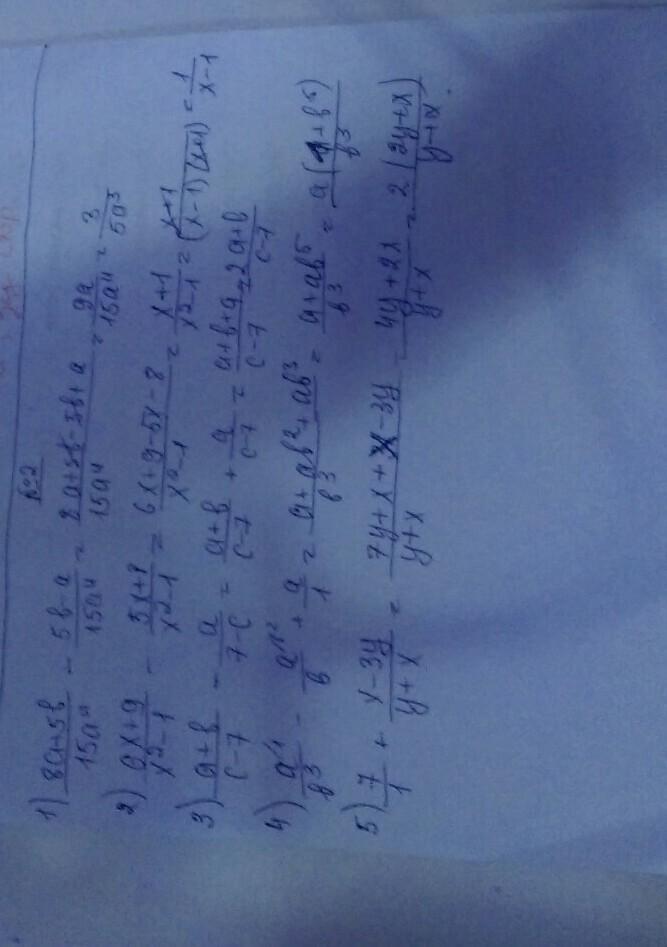 №2
1) (8a+5b)/(15a⁴) - (5b-a)/(15a⁴) = (8a+5b-5b+a)/(15a⁴) = 9a/(15a⁴) = 3/(5a³)
2) (6x+9)/(x²-1) - (5x+8)/(x²-1) = (6x+9-5x-8)/(x²-1) = (x+1)/(x²-1) = (x+1)/((x-1)(x+1)) = 1/(x-1)
3) (a+b)/(c-7) - a/(7-c) = (a+b)/(c-7) + a/(c-7) = (a+b+a)/(c-7) = (2a+b)/(c-7)
4) a/b³ - a/b + a/1 = (a+ab²+ab³)/b³ = (a+ab⁵)/b³ = a(1+b⁵)/b³
5) 7/1 + (x-3y)/(y+x) = (7y+x+x-3y)/(y+x) = (4y+2x)/(y+x) = 2(2y+x)/(y+x).